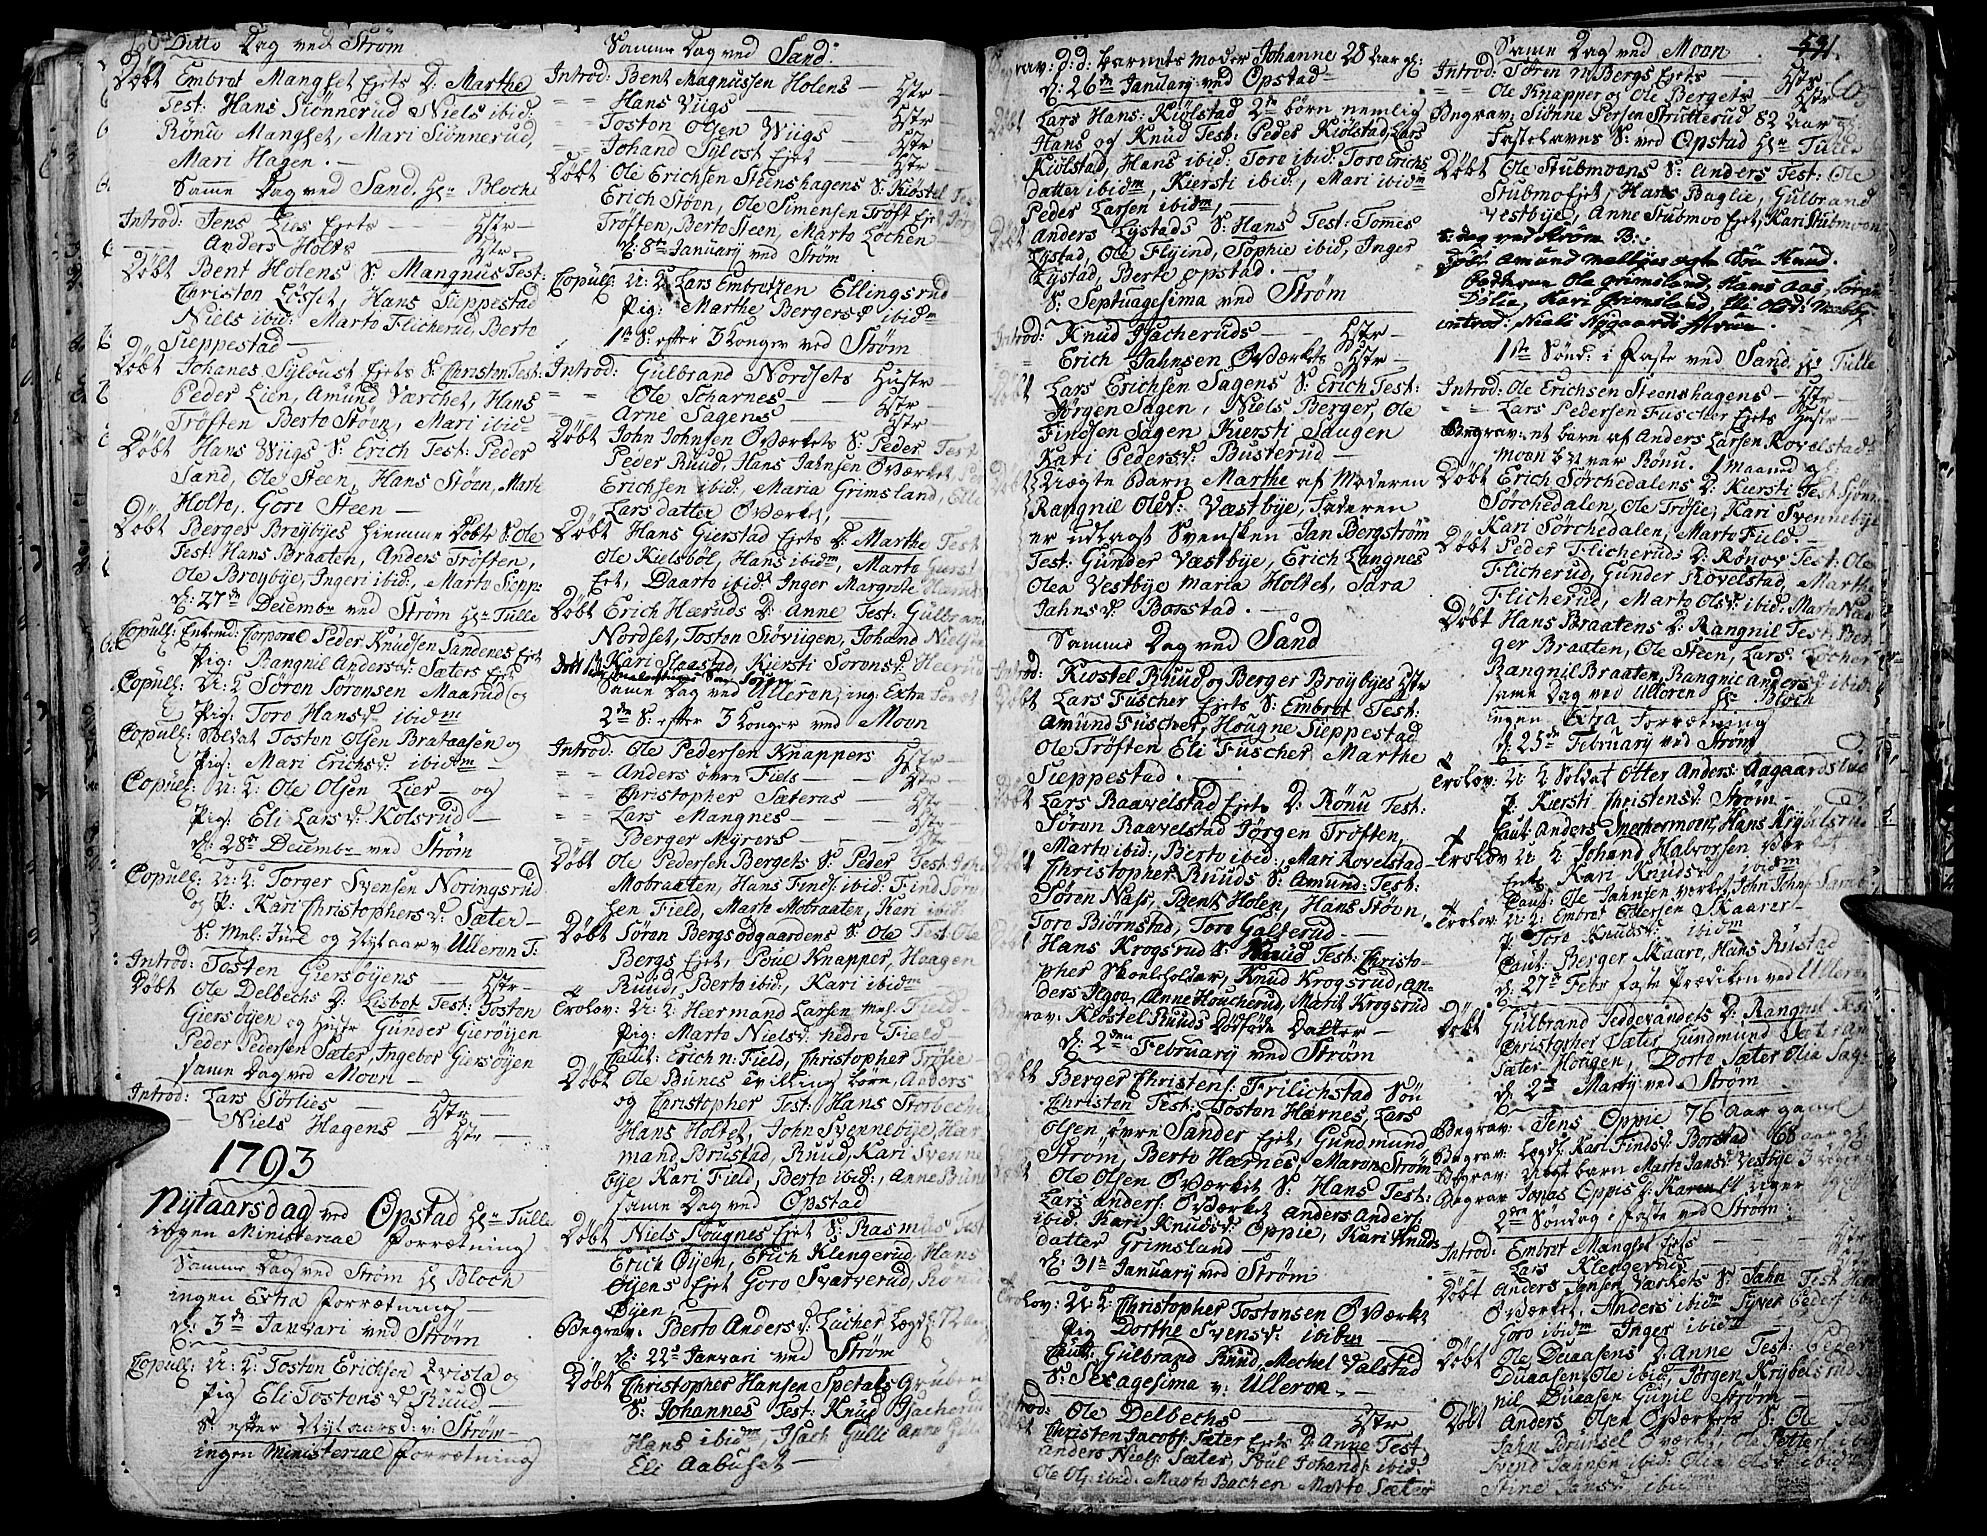 Ditto Dag ved Strøm
Døbt Embret Mangset Ejets D: Marthe
Test: Hans Siønnerud Niels ibid:
Rønu Mangset, Mari Siønnerud,
Mari Hagen. -
Samme Dag ved Sand. Hr Bloch
Introd: Jens Lies Ejets - - Hstr -
Anders Holts Hstr -
Døbt Bent Holens S: Mangnus Test:
Christen Løsset, Hans Sieppestad
Niels ibid: Marte Flicherud, Berte
Sieppestad -
Døbt Johanes Syloust Ejets S: Christen Test:
Peder Lien, Amund Værchet, Hans
Trøften Berte Støvn, Mari ibid
Døbt Hans Wiigs S: Erich Test: Peder
Sand, Ole Steen, Hans Støen, Marte
Holte, Gore Steen -
Døbt Berges Brøybyes hiemme Døbt S: Ole
Test: Hans Braaten, Anders Trøften,
Ole Brøybye, Ingeri ibid:, Marte Siepp:
D: 27de Decembr ved Strøm Hr Tulle
Copull: Entrud: Corporal Peder Knudsen Sandenes Ejet
Pig: Rangnil Andersd: Sæters Ejet
Copull: U: K: Søren Sørensen Maarud og
Pig: Tore Hansd: ibidm
Copull: Soldat Tosten Olsen Brataasen og
Pig: Mari Erichsd: ibidm -
Copull: U: K: Ole Olsen Lier - og
Pig: Eli Larsd: Kolsrud -
D: 28de Decembr ved Strøm
Copull: U: K: Torger Svensen Noringsrud
og P: Kari Christophersd: Sæter -
S: Mel: Juul og Nytaar v: Ulleren T:
Introd: Tosten Giersøyens - Hstr -
Døbt Ole Delbechs D: Lisbet Test: Tosten
Giersøyen og Hustr Gunder Gierøyen
Peder Pedersen Sæter, Ingebor Giersøyen
samme Dag ved Moen -
Introd: Lars Sørlies - Hstr -
Niels Hagens - Hstr -
1793
Nytaarsdag ved Opstad Hr Tulle
ingen Ministerial Forrætning
Samme Dag ved Strøm Hr Bloch
ingen Extra Forrætning
D: 3de Januari ved Strøm
Copull: U: K: Tosten Erichsen Qvisla og
Pig Eli Tostensd: Ruud -
S: efter Nytaarsd: v: Strøm -
ingen Ministerial Forrætning
Samme Dag ved Sand:
Introd: Bent Magnussen Holens - Hstr -
Hans Wiigs - Hstr -
Tosten Olsen Wiigs - Hstr
Johand Sylost Ejet - Hstr -
Døbt Ole Erichsen Steenshagens S: Kiøstel Test
Erich Støvn, Ole Simensen Trøft Ejet, Jørg
Trøften, Berte Steen, Marte Løchen -
D: 8de January ved Strøm
Copull: U: K: Lars Embretzen Ellingsrud
Pig: Marthe Bergersd: ibidm
1te S: efter 3 Konger ved Strøm
Introd: Gulbrand Nordsets Hustr -
Ole Scharnes - Hstr -
Arne Sagenes - Hstr
Døbt John Johnsen Øværkets S: Peder Test
Peder Ruud, Hans Jahnsen Øværket, Per
Erichsen ibid:, Maria Grimsland, Elle
Larsdatter Øværket, -
Døbt Hans Gierstad Ejets D: Marthe Test
Ole Kielsbøl, Hans ibidm, Marte Gierst
Ejet, Daarte ibid: Inger Margrete Hæmes
Døbt Erich Hæruds D: Anne Test: Gulbrand
Nordset, Tosten Støviigen, Johand Nielsen
Kari Slaastad, Kiersti Sørensd: Heerud
Samme Dag ved Ulleren, ing: Extra Forret
2den S: efter 3 Konger ved Moen
Introd: Ole Pedersen Knappers Hstr -
Anders øvre Fiels - Hstr -
Christopher Sæteras - Hstr -
Lars Mangnes - Hstr -
Berger Myrers - Hstr -
Døbt Ole Pedersen Bergets S: Peder Test: Joh
Mobraaten, Hans Finds: ibid: Find Søren
sen Field, Marte Mobraaten, Kari ibid:
Døbt Søren Bergsødgaardens S: Ole Test: Ole
Bergs Ejet, Poul Knapper, Haagen
Ruud, Berte ibid:, Kari ibidm
Trolov: U: K: Hærmand Larsen Mel: Field -
Pig: Marte Nielsd: nedre Field -
Caut: Erich n: Field, Christopher Trøfie
Døbt Ole Bunes Tvilling børn, Anders
og Christopher Test: Hans Storbechen
Hans Holtet, John Svennebye, Har
mand Brustad, Ruud, Kari Svenne
bye Kari Field, Berte ibid:, Anne Bun
samme Dag ved Opstad
Døbt Niels Sougnes Ejet S: Rasmus Test
Erich Øyen, Erich Klengerud, Hans
Øyens Ejet Goro Svarverud, Rønu
Øyen -
Begrav: Berte Andersd: Lucher Lægd: 72 aar
D: 22de Januari ved Strøm
Døbt Christopher Hansen Spetals Gruben
S: Johannes Test: Knud Isacherud
Hans ibidm, Isach Gulli Anne Gul
Eli Aabuset -
Begrav: d: d: Barnets Moder Johanne 28 Aar gl:
D: 26de January ved Opstad
Døbt Lars Hans: Kiølstad 2de børn nemlig
Hans og Knud Test: Peder Kiølstad, Lars
Kiølstad, Hans ibid: Tore ibid: Tore Erichs
datter ibidm, Kiersti ibid:, Mari ibidm
Peder Larsen ibidm, -
Døbt Anders Lystads S: Hans Test: Tomes
Lystad, Ole Flyind, Sophie ibid, Inger
Lystad, Berte Opstad. -
S: Septuagesima ved Strøm
Introd: Knud Isacheruds - Hstr -
Erich Jahnsen Øværkets Hstr -
Døbt Lars Erichsen Sagens S: Erich Test:
Jørgen Sagen, Niels Berger, Ole
Findsen Sagen Kiersti Saugen
Kari Pedersd: Busterud -
Døbt Uægte Barn Marthe af Moderen
Rangnil Olsd: Væstbye, Faderen
er udlagt Svensken Jan Bergstrøm
Test: Gunder Væstbye, Erich Langnes
Olea Vestbye Maria Holtet, Sara
Jahnsd: Borstad. -
Samme Dag ved Sand
Introd: Kiostel Ruud og Berger Brøybyes Hstr
Døbt Lars Fuscher Ejets S: Embret Test:
Amund Fuscher, Hougne Sieppestad
Ole Trøften Eli Fuscher Marthe
Sieppestad. -
Døbt Lars Raavelstad Ejets D: Rønu Test:
Søren Raavelstad Jørgen Trøften,
Marte ibid:, Berte ibid:, Mari Rovelstad -
Døbt Christopher Ruuds S: Amund: Test:
Søren Næss, Bent Holen, Hans Støvn,
Tore Biørnstad, Tore Galterud -
Døbt Hans Krogsrud S: Knud Test: Christo-
pher Skoelholder, Knud Krogsrud, An-
ders Moe, Anne Houcherud, Marit Krogsrud
Begrav: Kløstel Ruuds Dødføde Datter -
D: 2den February ved Strøm
Døbt Berger Christens: Frilichstad Søn
Christen Test: Tosten Hærnes, Lars
Olsen øvre Sander Ejet, Gundmund
Strøm, Berte Hærnes, Maren Strøm
Døbt Ole Olsen Øværket S: Hans Test:
Lars Anders: Øværket Anders Anders:
ibid: Kari Knudsd: Oppie, Kari Knuds
datter Grimsland -
D: 31te January ved Strøm
Trolov: U: K: Christopher Tostensen Øværket
Pig Dorthe Svensd: ibidm -
Caut: Gulbrand Ruud, Mechel Valstad
S: Sexagesima v: Ulleren. -
Introd: Ole Delbechs - Hstr
Døbt Christen Jacobs: Sæter Ejets D: Anne Test
Anders Niels: Sæter, Poul Johands: ibid:
Ole Ols: ibid: Marte Bachen Marte Sæter
Same Dag ved Moen
Introd: Søren n: Bergs Ejets Hstr
Ole Knapper og Ole Bergets Hstr
Begrav: Siønne Persen Strutterud 82 Aar gl
Fastelavns S: ved Opstad Hr Tulle
Døbt Ole Stubmoens S: Anders Test: Ole
Stubmo Ejet, Hans Baglie, Gulbrand
Vestbye, Anne Stubmoe Ejet, Kari Stubmoen
S: Dag ved Strøm B:
Døbt Amund Melbyes ægte Søn Knud.
Fadderne Ole Grimsland, Hans Aas,
Kari Grimsland, Eli Olsd: Melby
Introd: Niels Nygaards Hstrue.
1ste Sønd: i Faste ved Sand. Hr Tulle
Introd: Ole Erichsen Steenshagens - Hstr -
Lars Pedersen Fuscher Ejets Hstr -
Begrav: et barn af Anders Larsen Rovelstad
moen 1 Maaned gl:
Døbt Erich Sørchedalens D: Kiersti Test: Siønne
Sørchedalen, Ole Trøfie, Kari Svennebye
Kari Sørchedalen, Marte Field -
Døbt Peder Flicheruds D: Rønov Test: Ole
Flicherud, Gunder Rovelstad, Marthe
Flicherud, Marte Olsd: ibid: Marte Næs
Døbt Hans Braatens D: Rangnil Test: Ber
ger Braaten, Ole Steen, Lars Løcher
Rangnil Braaten, Rangnil Andersd: ibid:
same Dag ved Ulleren Hr Bloch
ingen Extra Forrætning
D: 25de February ved Strøm
Trolov: U: K: Soldat Otter Anders: Aagaards
P: Kiersti Christensd: Strøm -
Caut: Anders Snechermoen, Hans Krybelsrud
Trolov U: K: Johand Halvorsen Vær
Ejets Kari Knudsd: ibidm
Caut: Ole Jahnsen Verket, John Johns:
Trolov: U: K: Embret Ottersen Skaarer -
P: Tore Knudsd: ibidm
Caut: Berger Maarr, Hans Rustad
D: 27de Febr Faste Prædiken ved Ulleren
Døbt Gulbrand Teddevandets D: Rangnil Test
Christopher Sæter Gundmund
Sæter Hougen, Dorte Sæter Olia
D: 2de Marty ved Strøm
Begrav: Jens Oppie 76 Aar gamel
Begrav: Lægd: Kari Findsd: Borstad 68 aar gl:
Begrav: Udøbt barn Marte Jansd: Vestbye
Begrav Jonas Oppis D: Karen 14 uger
2den Søndag i Faste ved Strøm:
Introd: Embret Mangset Ejets -
Lars Klengeruds -
Døbt Anders Jansen Værkets S: Jahn Test
Øværket, Anders ibidm Syver Peders: ibid
Goro ibidm Inger ibidm
Døbt Ole Duaasens D: Anne Test: Peder
Duaasen, Ole ibid, Jørgen Krybelsrud
nil Duaasen Gunil Strøm -
Døbt Anders Olsen Øværkets S: Ole Test
Jahn Brunsel Øværket, Ole Otters:
Svend Jahnsen ibid: Olia Olsd: ibid
Stine Jansd: ibid